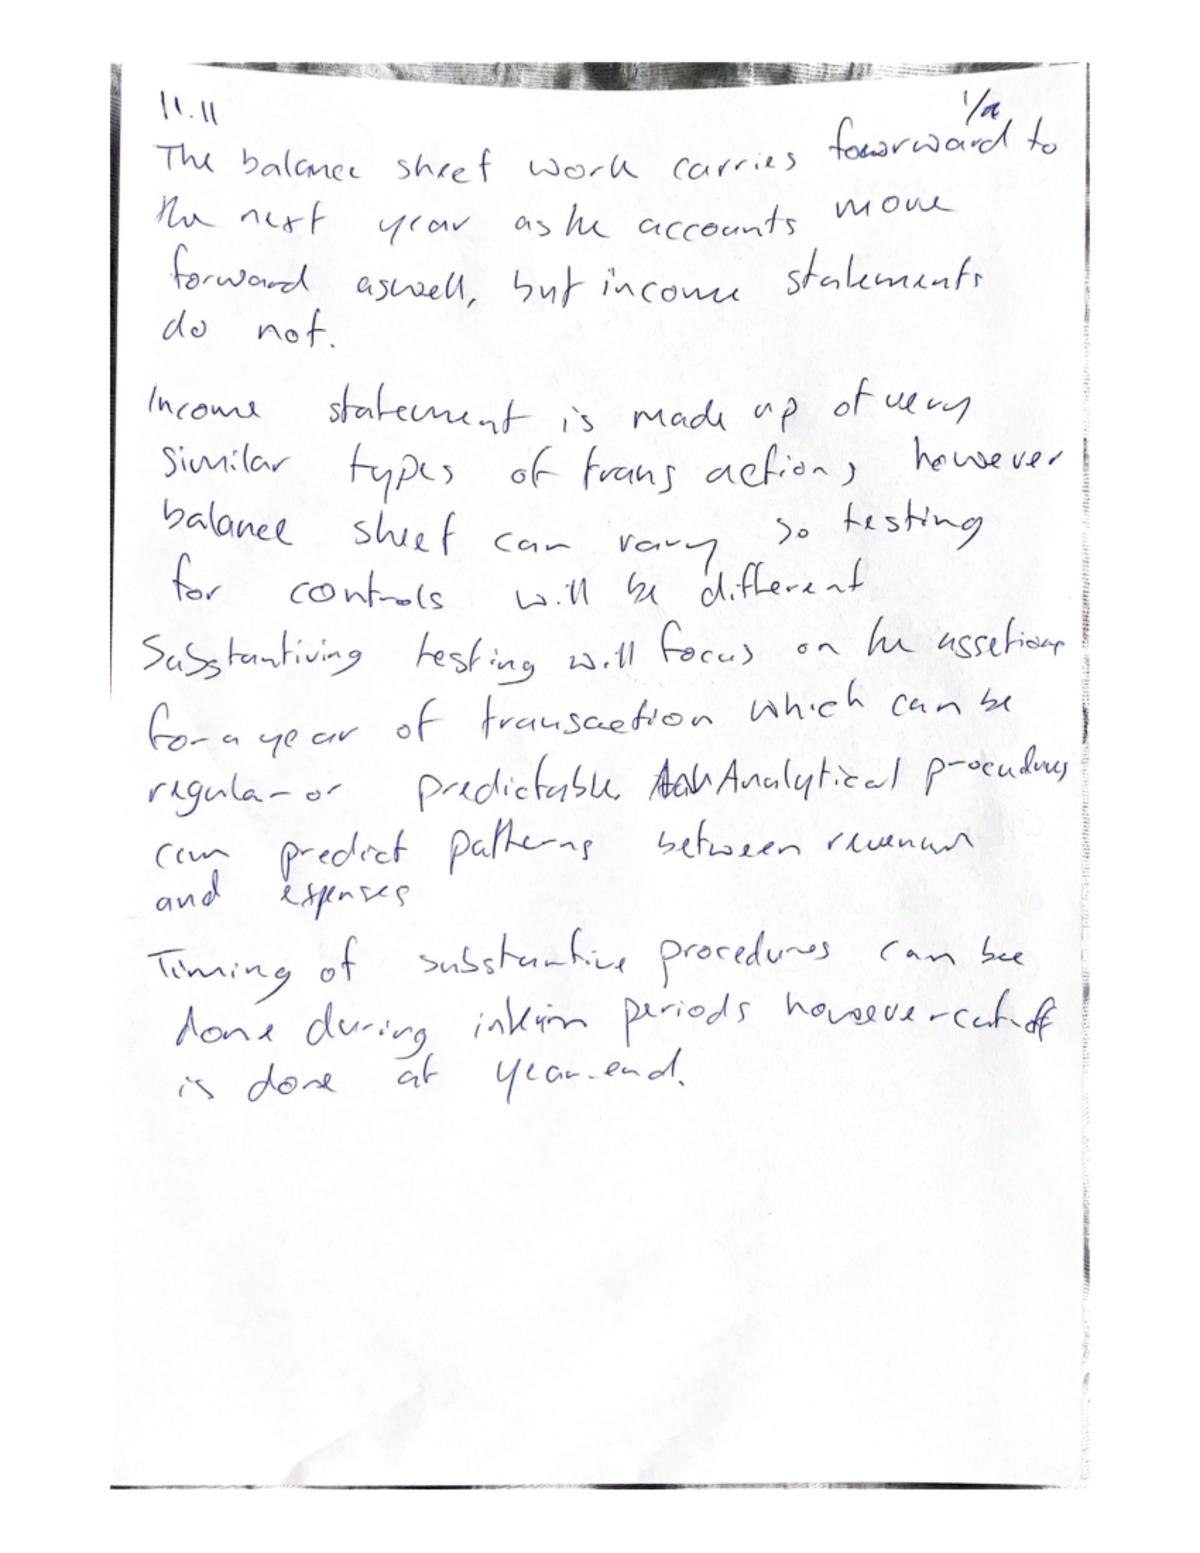 11.11
The balance sheet work carries foworward to
the next year as he accounts move
forward aswell, but income statements
do not.
Income statement is made up of very
similar types of trans actions however
balance sheet can vary so testing
for controls will be different
Substantiving testing will focus on he assetions
for a year of transaction which can be
regular or predictable. Analytical procedures
can predict patterns between revenue
and expenses
Timing of substantive procedures can bee
done during interim periods however cut-off
is done at year-end.